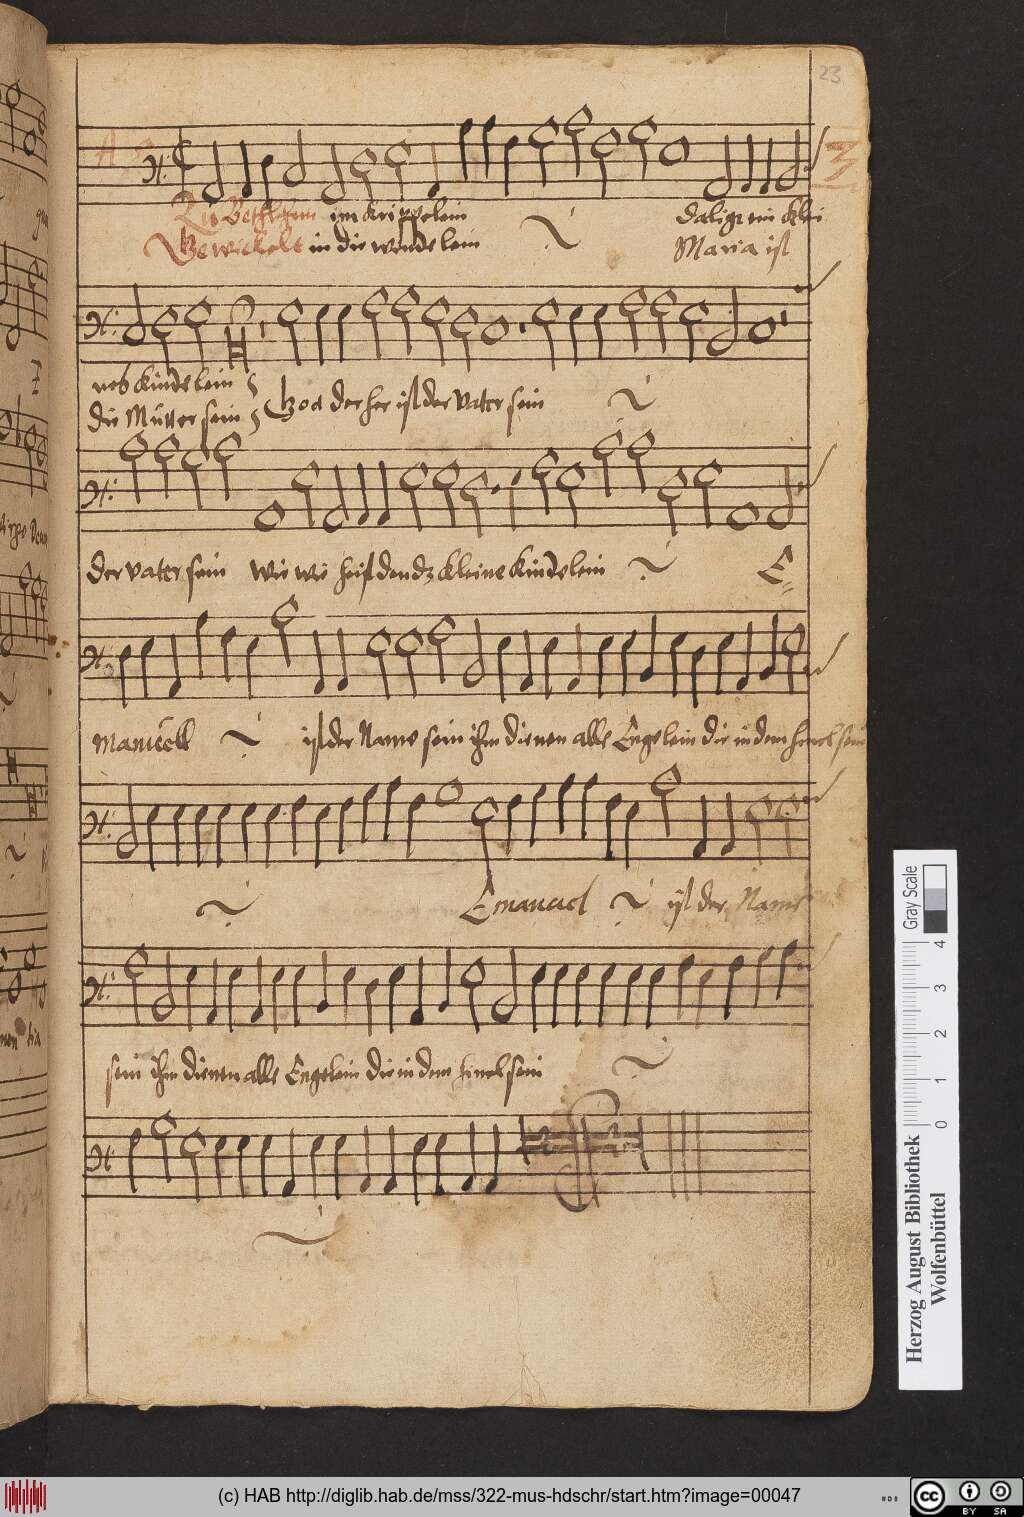 23
A
3
Zu Bethlehem im krippelein daligt ein klei
Gewickelt in die windelein Maria ist
nes kindelein
die Mutter sein Got der her ist der vater sein
der vater sein wie wie heist den dz kleine kindelein E=
manuell ist der Name sein ihm dienen alle Engelein die in dem himel sein
Emanuel ist der Name
sein ihm dienen alle Engelein die in dem himel sein
Gray Scale
0 1 2 3 4
Herzog August Bibliothek
Wolfenbüttel
(c) HAB http://diglib.hab.de/mss/322-mus-hdschr/start.htm?image=00047
cc BY SA